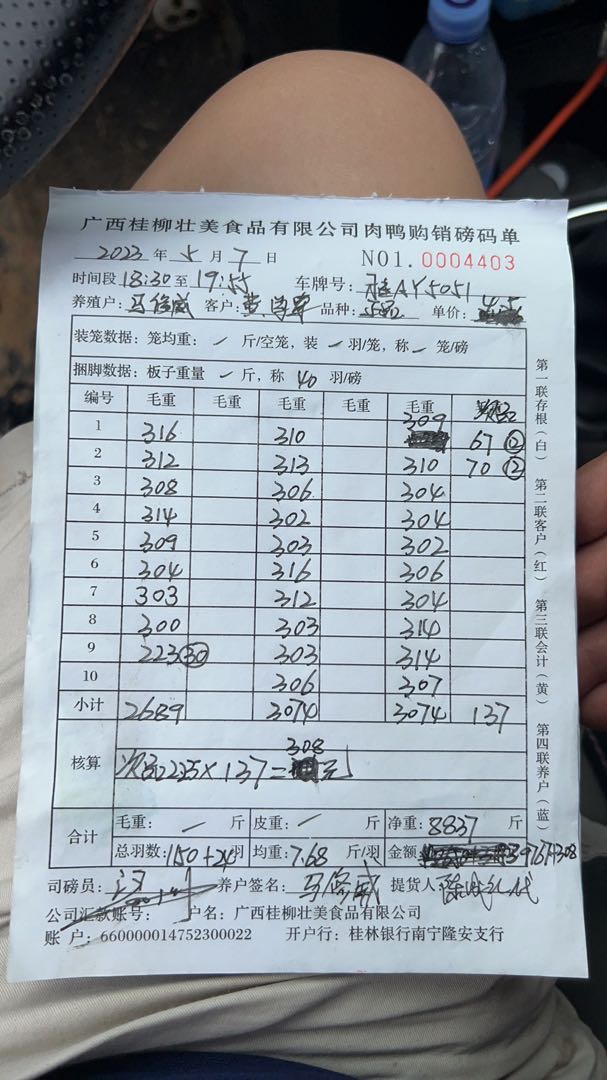 广西桂柳壮美食品有限公司肉鸭购销磅码单
2023 年 5 月 7 日 NO1. 0004403
时间段 18:30 至 19:55 车牌号: 桂AY5051
养殖户: 马修威 客户: 品种: 单价: 4.5
装笼数据: 笼均重: / 斤/空笼, 装 / 羽/笼, 称 / 笼/磅
捆脚数据: 板子重量 / 斤, 称 40 羽/磅
编号 毛重 毛重 毛重 毛重 毛重
1 316 310 309 67 ⑫
2 312 313 310 70 ⑫
3 308 306 304
4 314 302 304
5 309 303 302
6 304 316 306
7 303 312 304
8 300 303 314
9 223 ㉚ 303 314
10 306 307
小计 2689 3074 3074 137
核算 308
2.25×137= 元
合计 毛重: / 斤 皮重: / 斤 净重: 8837 斤
总羽数: 1150+24 羽 均重: 7.68 斤/羽 金额: 39767+308
司磅员: 养户签名: 马修威 提货人
公司汇款账号: 户名: 广西桂柳壮美食品有限公司
账 户: 660000014752300022 开户行: 桂林银行南宁隆安支行
第一联存根(白) 第二联客户(红) 第三联会计(黄) 第四联养户(蓝)